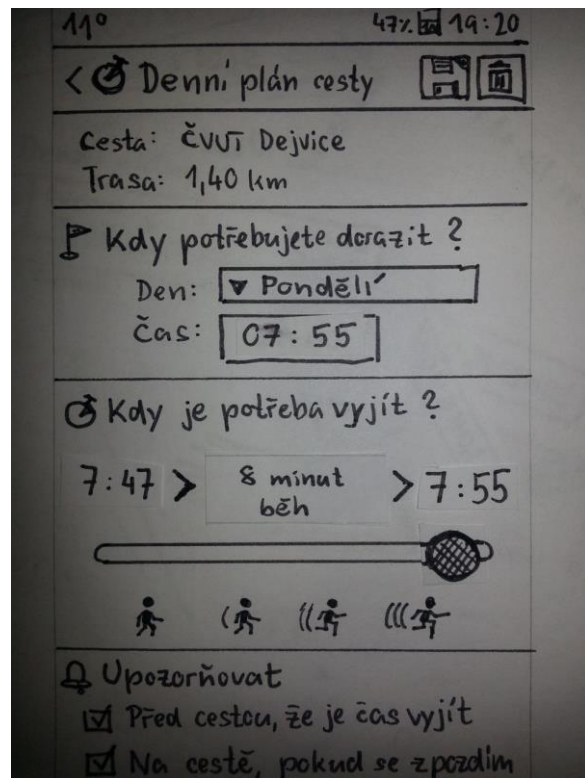 11° 47% 3G 19:20
< Denní plán cesty
Cesta: ČVUT Dejvice
Trasa: 1,40 km
Kdy potřebujete dorazit ?
Den: ▼ Pondělí
Čas: 07:55
Kdy je potřeba vyjít ?
7:47 > 8 minut běh > 7:55
Upozorňovat
Před cestou, že je čas vyjít
Na cestě, pokud se zpozdím